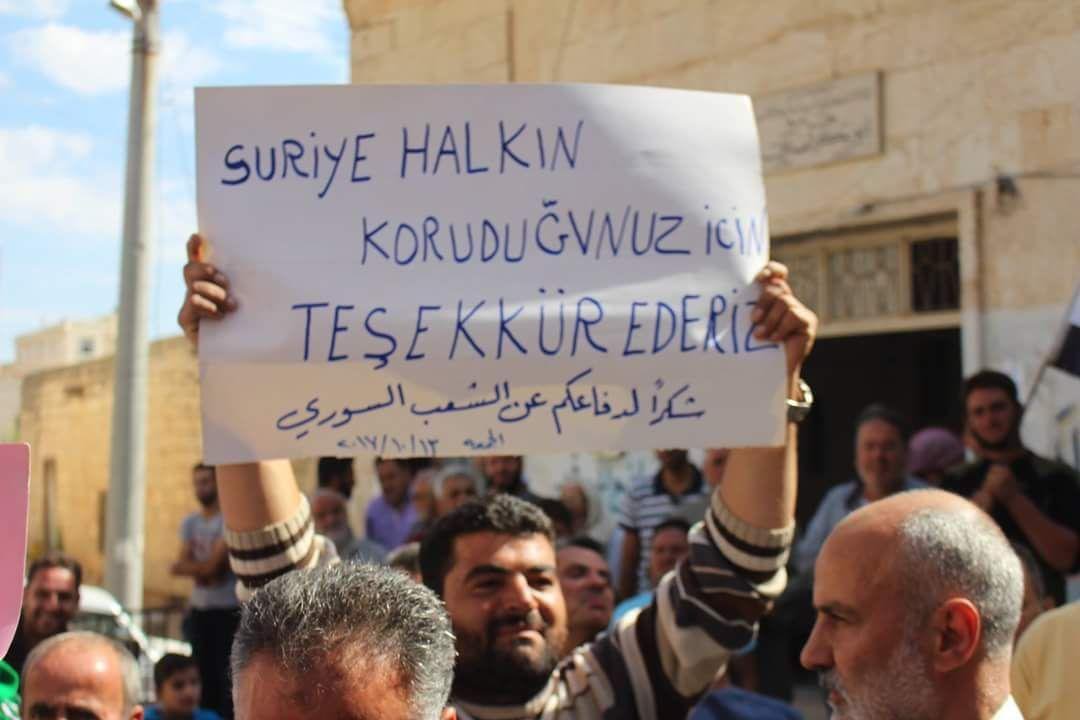 SURİYE HALKIN
KORUDUĞUNUZ İÇİN
TEŞEKKÜR EDERİZ
شكراً لدفاعكم عن الشعب السوري
الجمعه ٢٠١٧/١٠/١٣